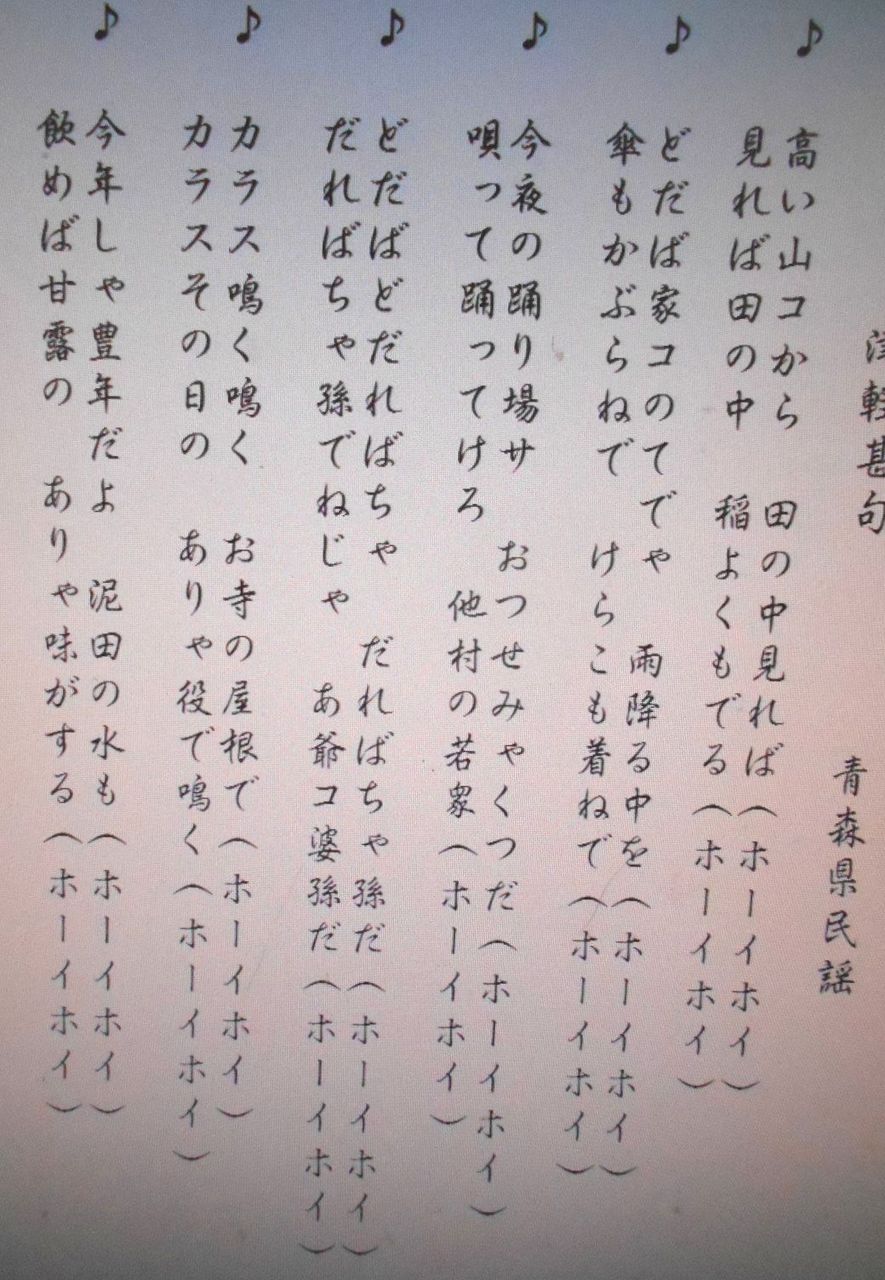 津軽甚句
青森県民謡
♪
高い山コから 田の中見れば（ホーイホイ）
見れば田の中 稲よくもでる（ホーイホイ）
♪
どだば家コのてでや 雨降る中を（ホーイホイ）
傘もかぶらねで けらこも着ねで（ホーイホイ）
♪
今夜の踊り場サ おつせみゃくつだ（ホーイホイ）
唄って踊ってけろ 他村の若衆（ホーイホイ）
♪
どだばどだればちゃ だればちゃ孫だ（ホーイホイ）
だればちゃ孫でねじゃ あ爺コ婆孫だ（ホーイホイ）
♪
カラス鳴く鳴く お寺の屋根で（ホーイホイ）
カラスその日の ありゃ役で鳴く（ホーイホイ）
♪
今年しゃ豊年だよ 泥田の水も（ホーイホイ）
飲めば甘露の ありゃ味がする（ホーイホイ）